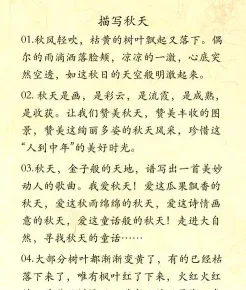 描写秋天
01.秋风轻吹，枯黄的树叶飘起又落下。偶
尔的雨滴洒落脸颊，凉凉的一激，心底突
然空透，如这秋日的天空般明澈起来。
02. 秋天是画，是彩云，是流霞，是成熟，
是收获。让我们赞美秋天，赞美丰收的图
景，赞美这绚丽多姿的秋天风采，珍惜这
“人到中年”的美好时光。
03.秋天，金子般的天地，谱写出一首美妙
动人的歌曲。我爱秋天！爱这瓜果飘香的
秋天，爱这秋雨绵绵的秋天，爱这诗情画
意的秋天，爱这童话般的秋天！走进大自
然，寻找秋天的童话……
04.大部分树叶都渐渐变黄了，有的已经枯
落下来了，唯有枫叶红了下来，火红火红